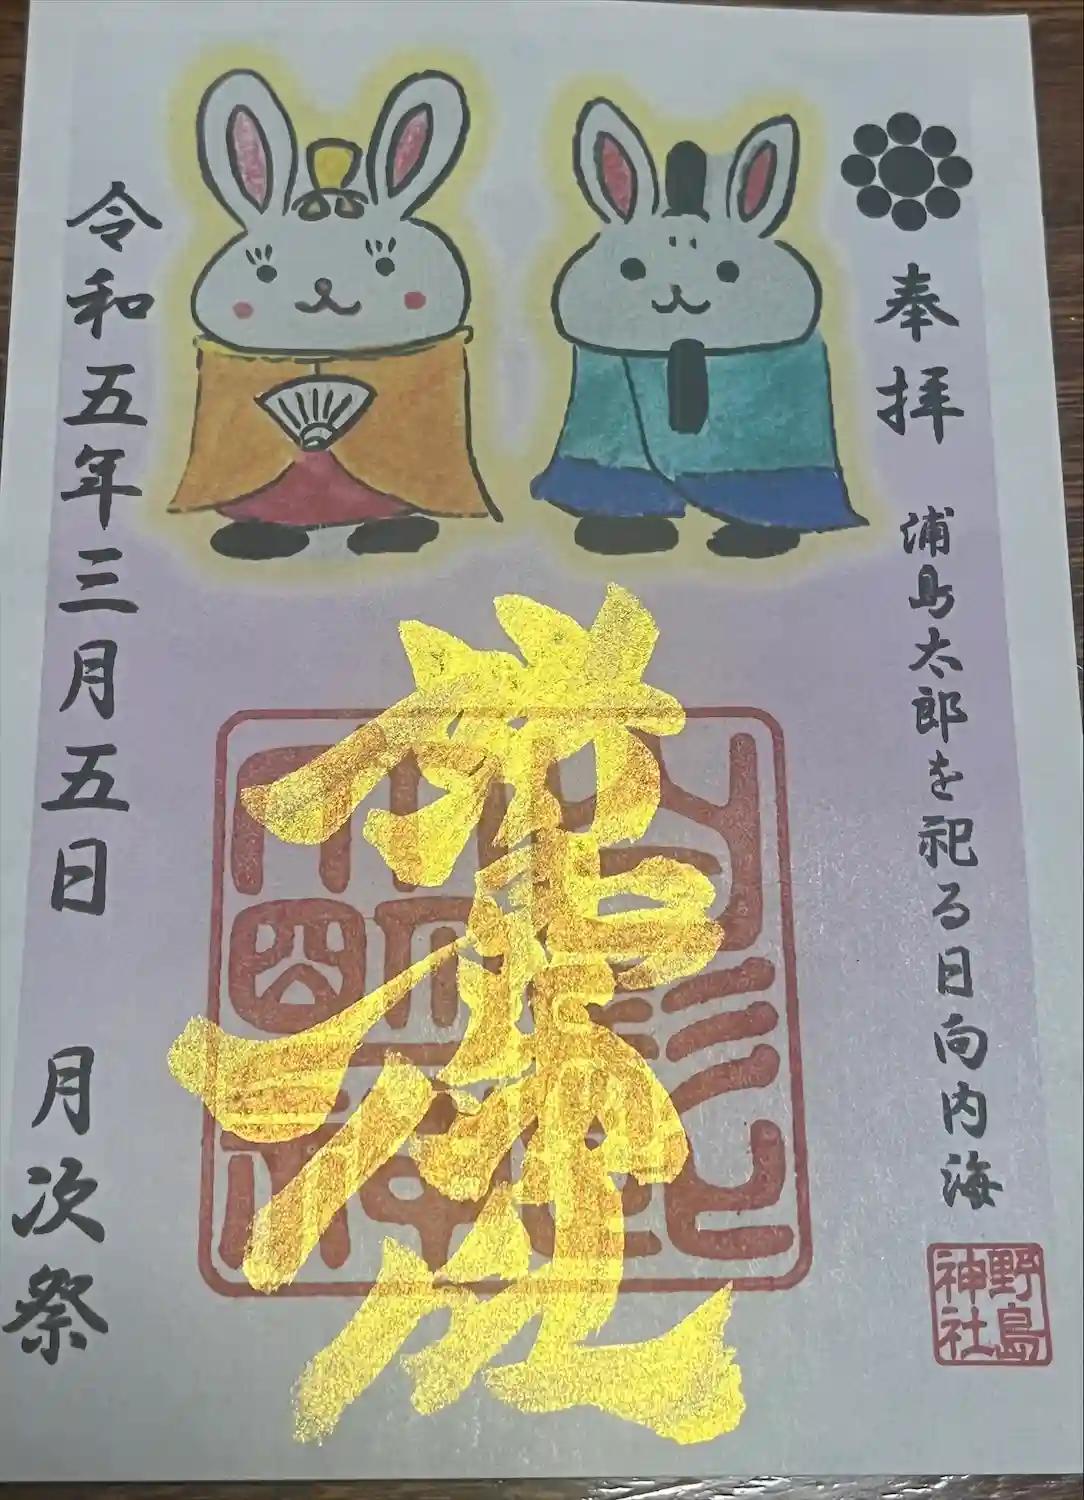 奉拝
浦島太郎を祀る日向内海
野島
神社
令和五年三月五日 月次祭